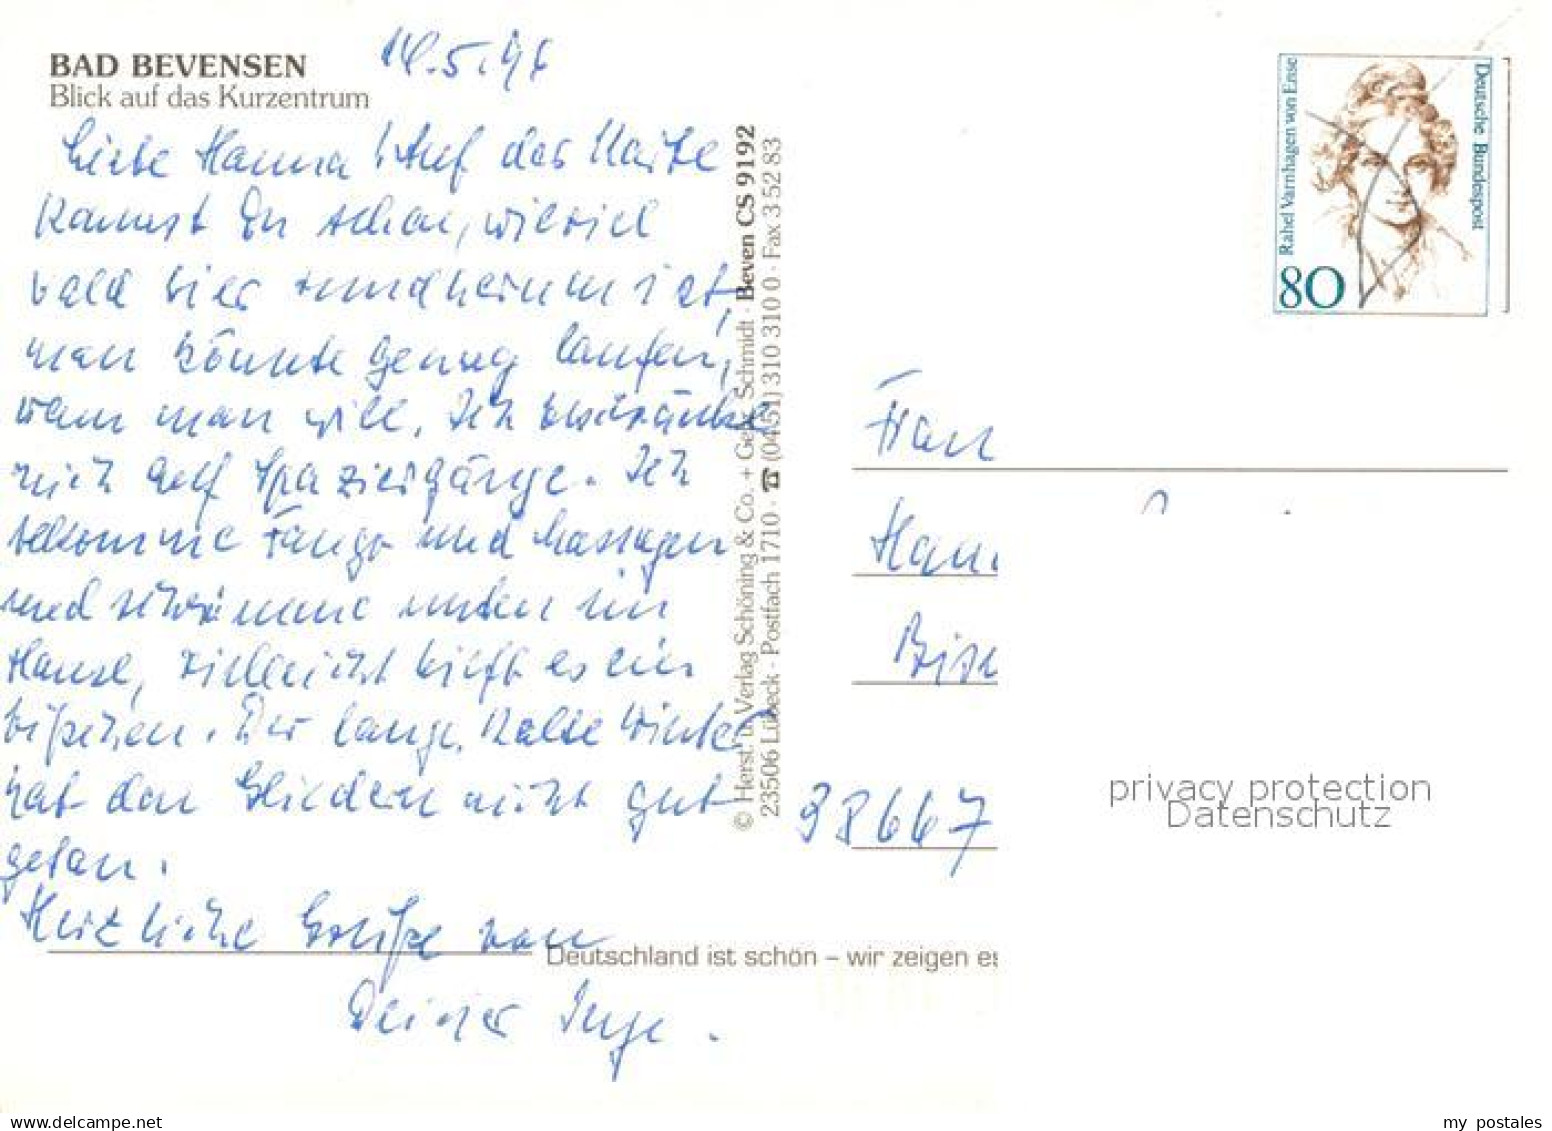 BAD BEVENSEN
Blick auf das Kurzentrum
Liebe Hanna! Auf der Karte
kannst Du sehen, wieviel
Wald hier rundherum ist,
man könnte genug laufen,
wenn man will. Ich beschränke
mich auf Spaziergänge. Ich
bekomme Fango und Massagen
und schwimme unten im
Hause, vielleicht hilft es ein
bißchen. Der lange, kalte Winter
hat den Gliedern nicht gut
getan.
Herzliche Grüße von
Deiner Inge.
© Herst. u. Verlag Schöning & Co. + Gebr. Schmidt · Beven CS 9192
23506 Lübeck · Postfach 1710 · ☎ (0451) 310 310 0 · Fax 3 52 83
Deutschland ist schön – wir zeigen es
Rahel Varnhagen von Ense
Deutsche Bundespost
80
Frau
38667
privacy protection
Datenschutz
www.delcampe.net
my_postales